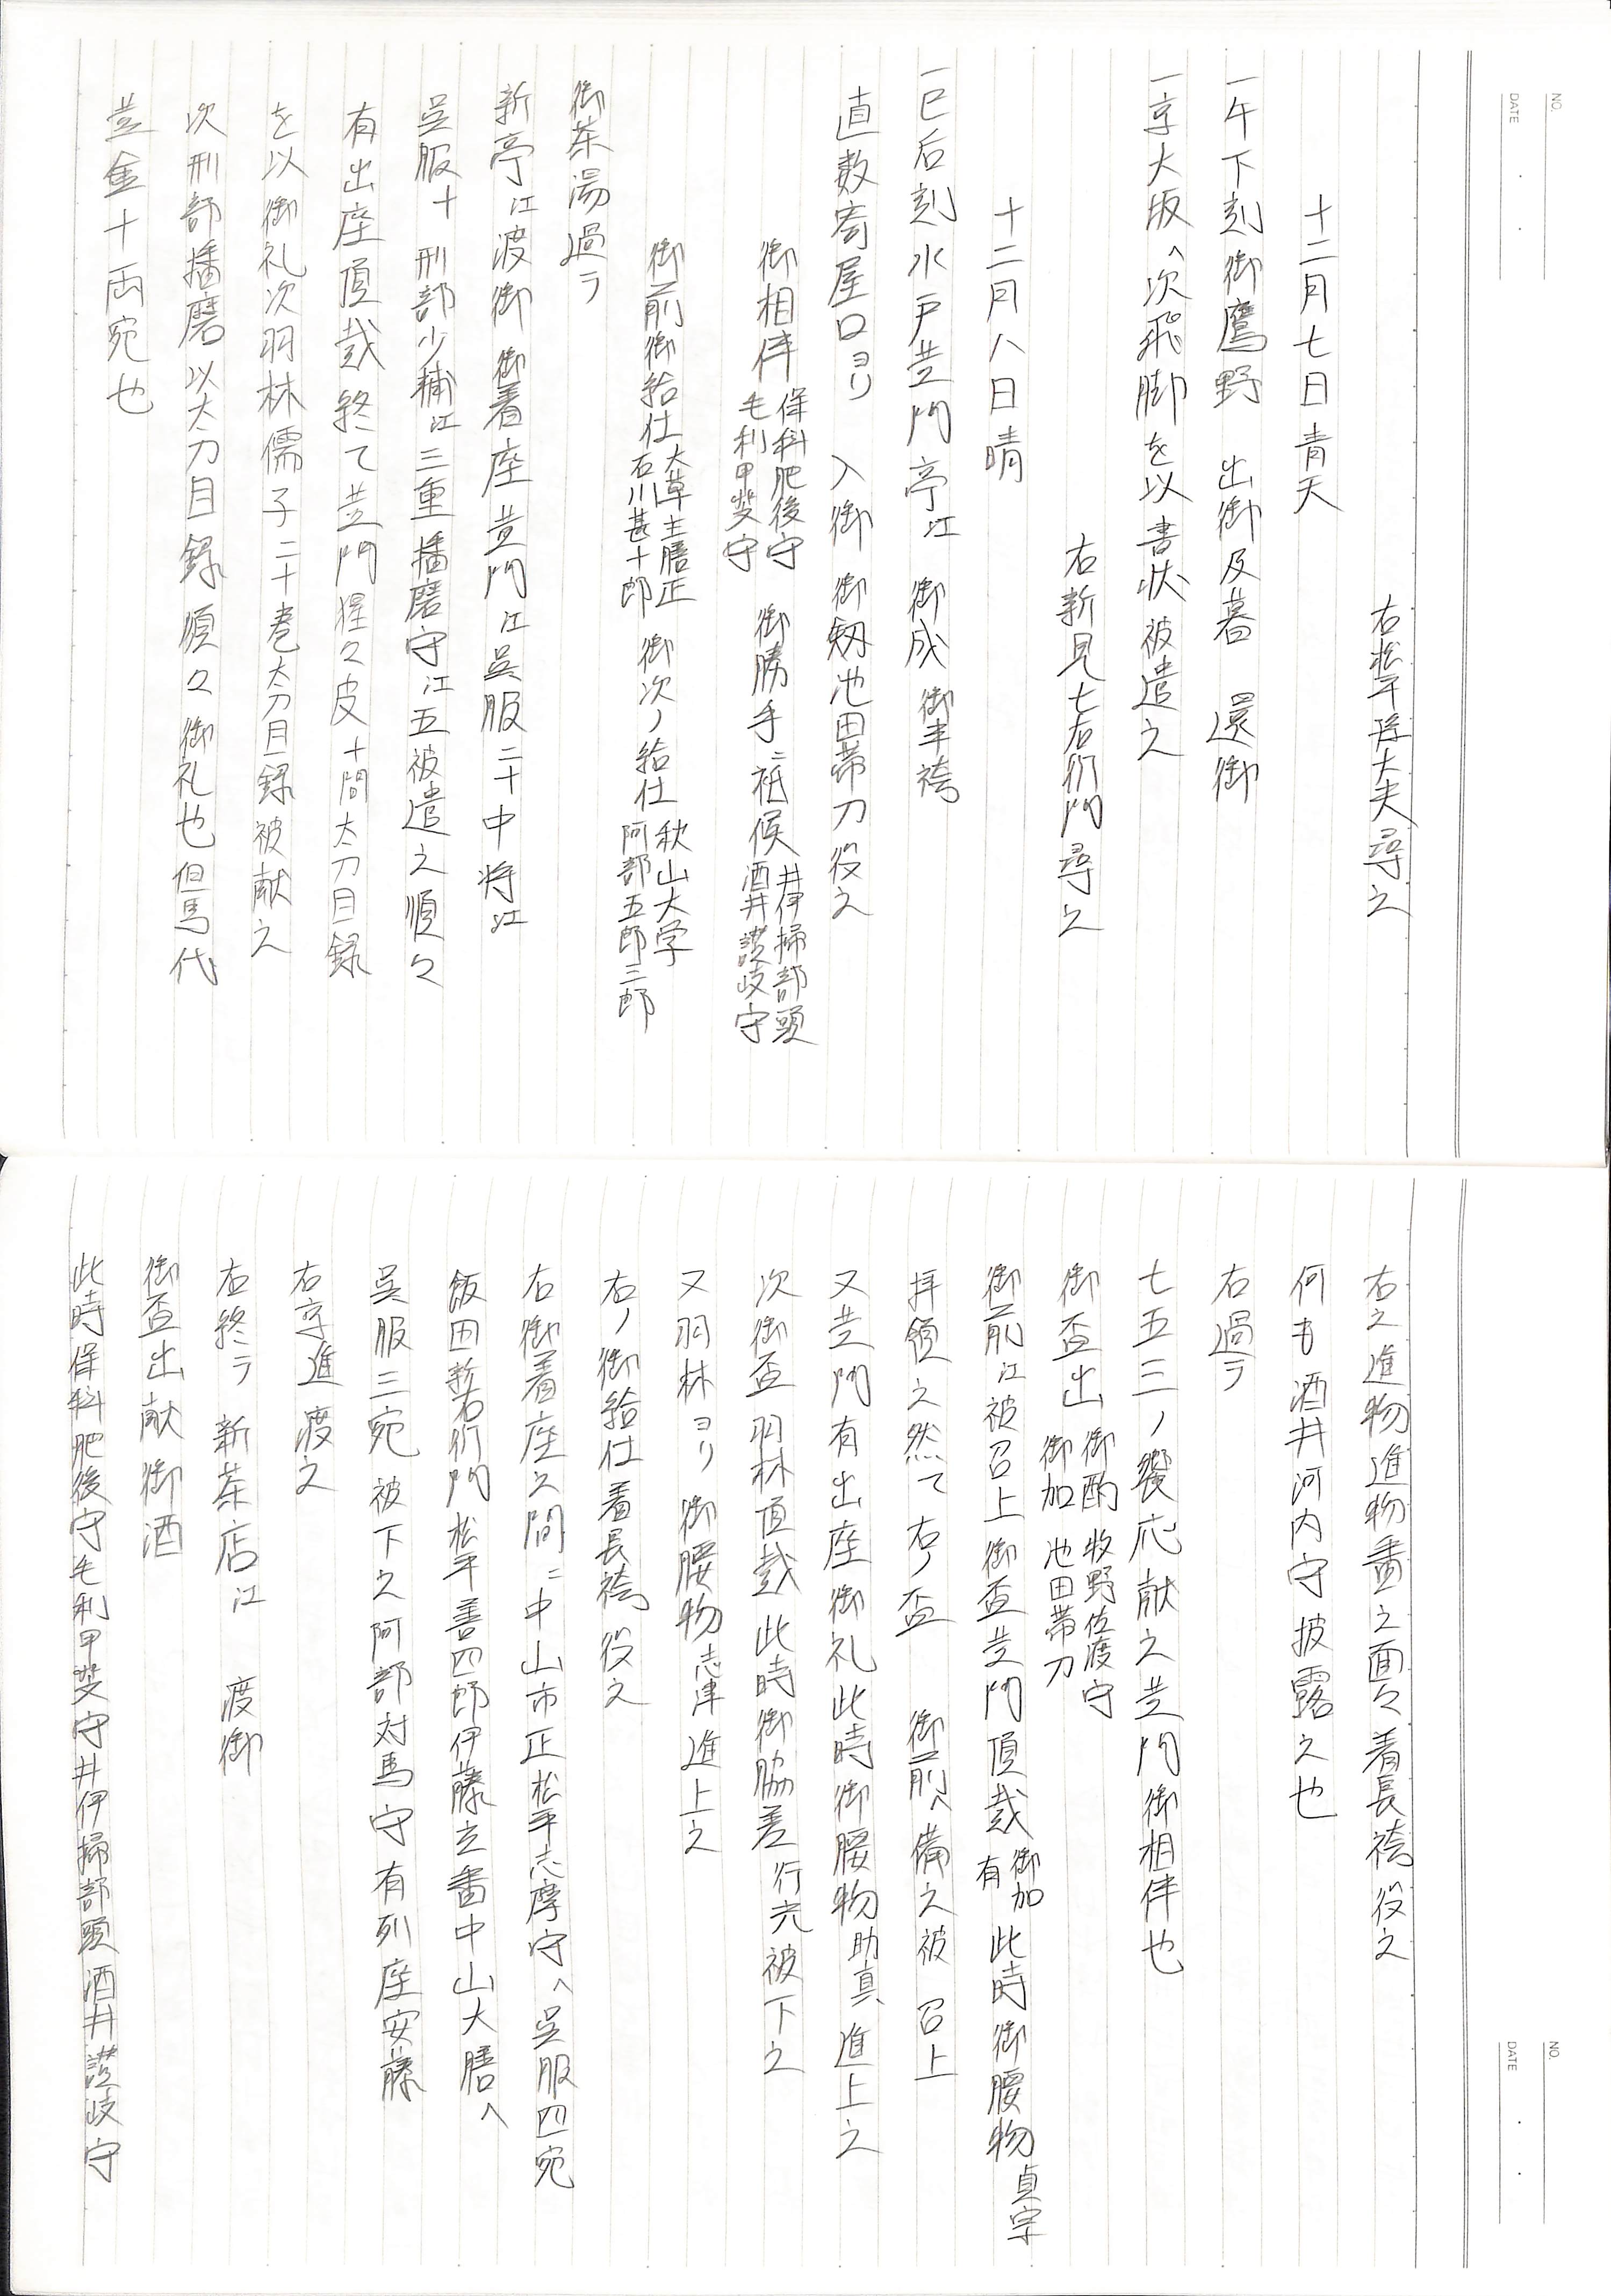 NO.
DATE
右松平隼大夫尋之
十二月七日青天
一午下刻御鷹野 出御及暮 還御
一京大阪へ次飛脚を以書状被遣之
右新見七右衛門尋之
十二月八日晴
一巳后刻水戸黄門亭江 御成 御半袴
直数寄屋口ヨリ 入御 御剱池田帯刀役之
御相伴 保科肥後守 毛利甲斐守 御勝手ニ祗候 井伊掃部頭 酒井讃岐守
御前御給仕 大草主膳正 石川甚十郎 御次ノ給仕 秋山大学 阿部五郎三郎
御茶湯過テ
新亭江渡御 御着座黄門江呉服二十中将江
呉服十 刑部少輔江三重播磨守江五被遣之順々
有出座頂戴終て黄門猩々皮十間太刀目録
を以御礼次羽林儒子二十巻太刀目録被献之
次刑部播磨以太刀目録順々御礼也但馬代
黄金十両宛也
NO.
DATE
右之進物進物番之面々着長袴役之
何も酒井河内守披露之也
右過テ
七五三ノ饗応献之黄門御相伴也
御盃出 御酌 牧野佐渡守 御加 池田帯刀
御前江被召上御盃黄門頂戴 御加有 此時御腰物 貞宗
拝領之然て右ノ盃 御前へ備之被 召上
又黄門有出座御礼此時御腰物 助真 進上之
次御盃羽林頂戴此時御脇差 行光 被下之
又羽林ヨリ 御腰物 志津 進上之
右ノ御給仕着長袴役之
右御着座之間ニ中山市正松平志摩守へ呉服四宛
飯田新右衛門松平善四郎伊藤玄蕃中山大膳へ
呉服三宛被下之阿部対馬守有列座安藤
右京進渡之
右終テ 新茶店江 渡御
御盃出献御酒
此時保科肥後守毛利甲斐守井伊掃部頭酒井讃岐守